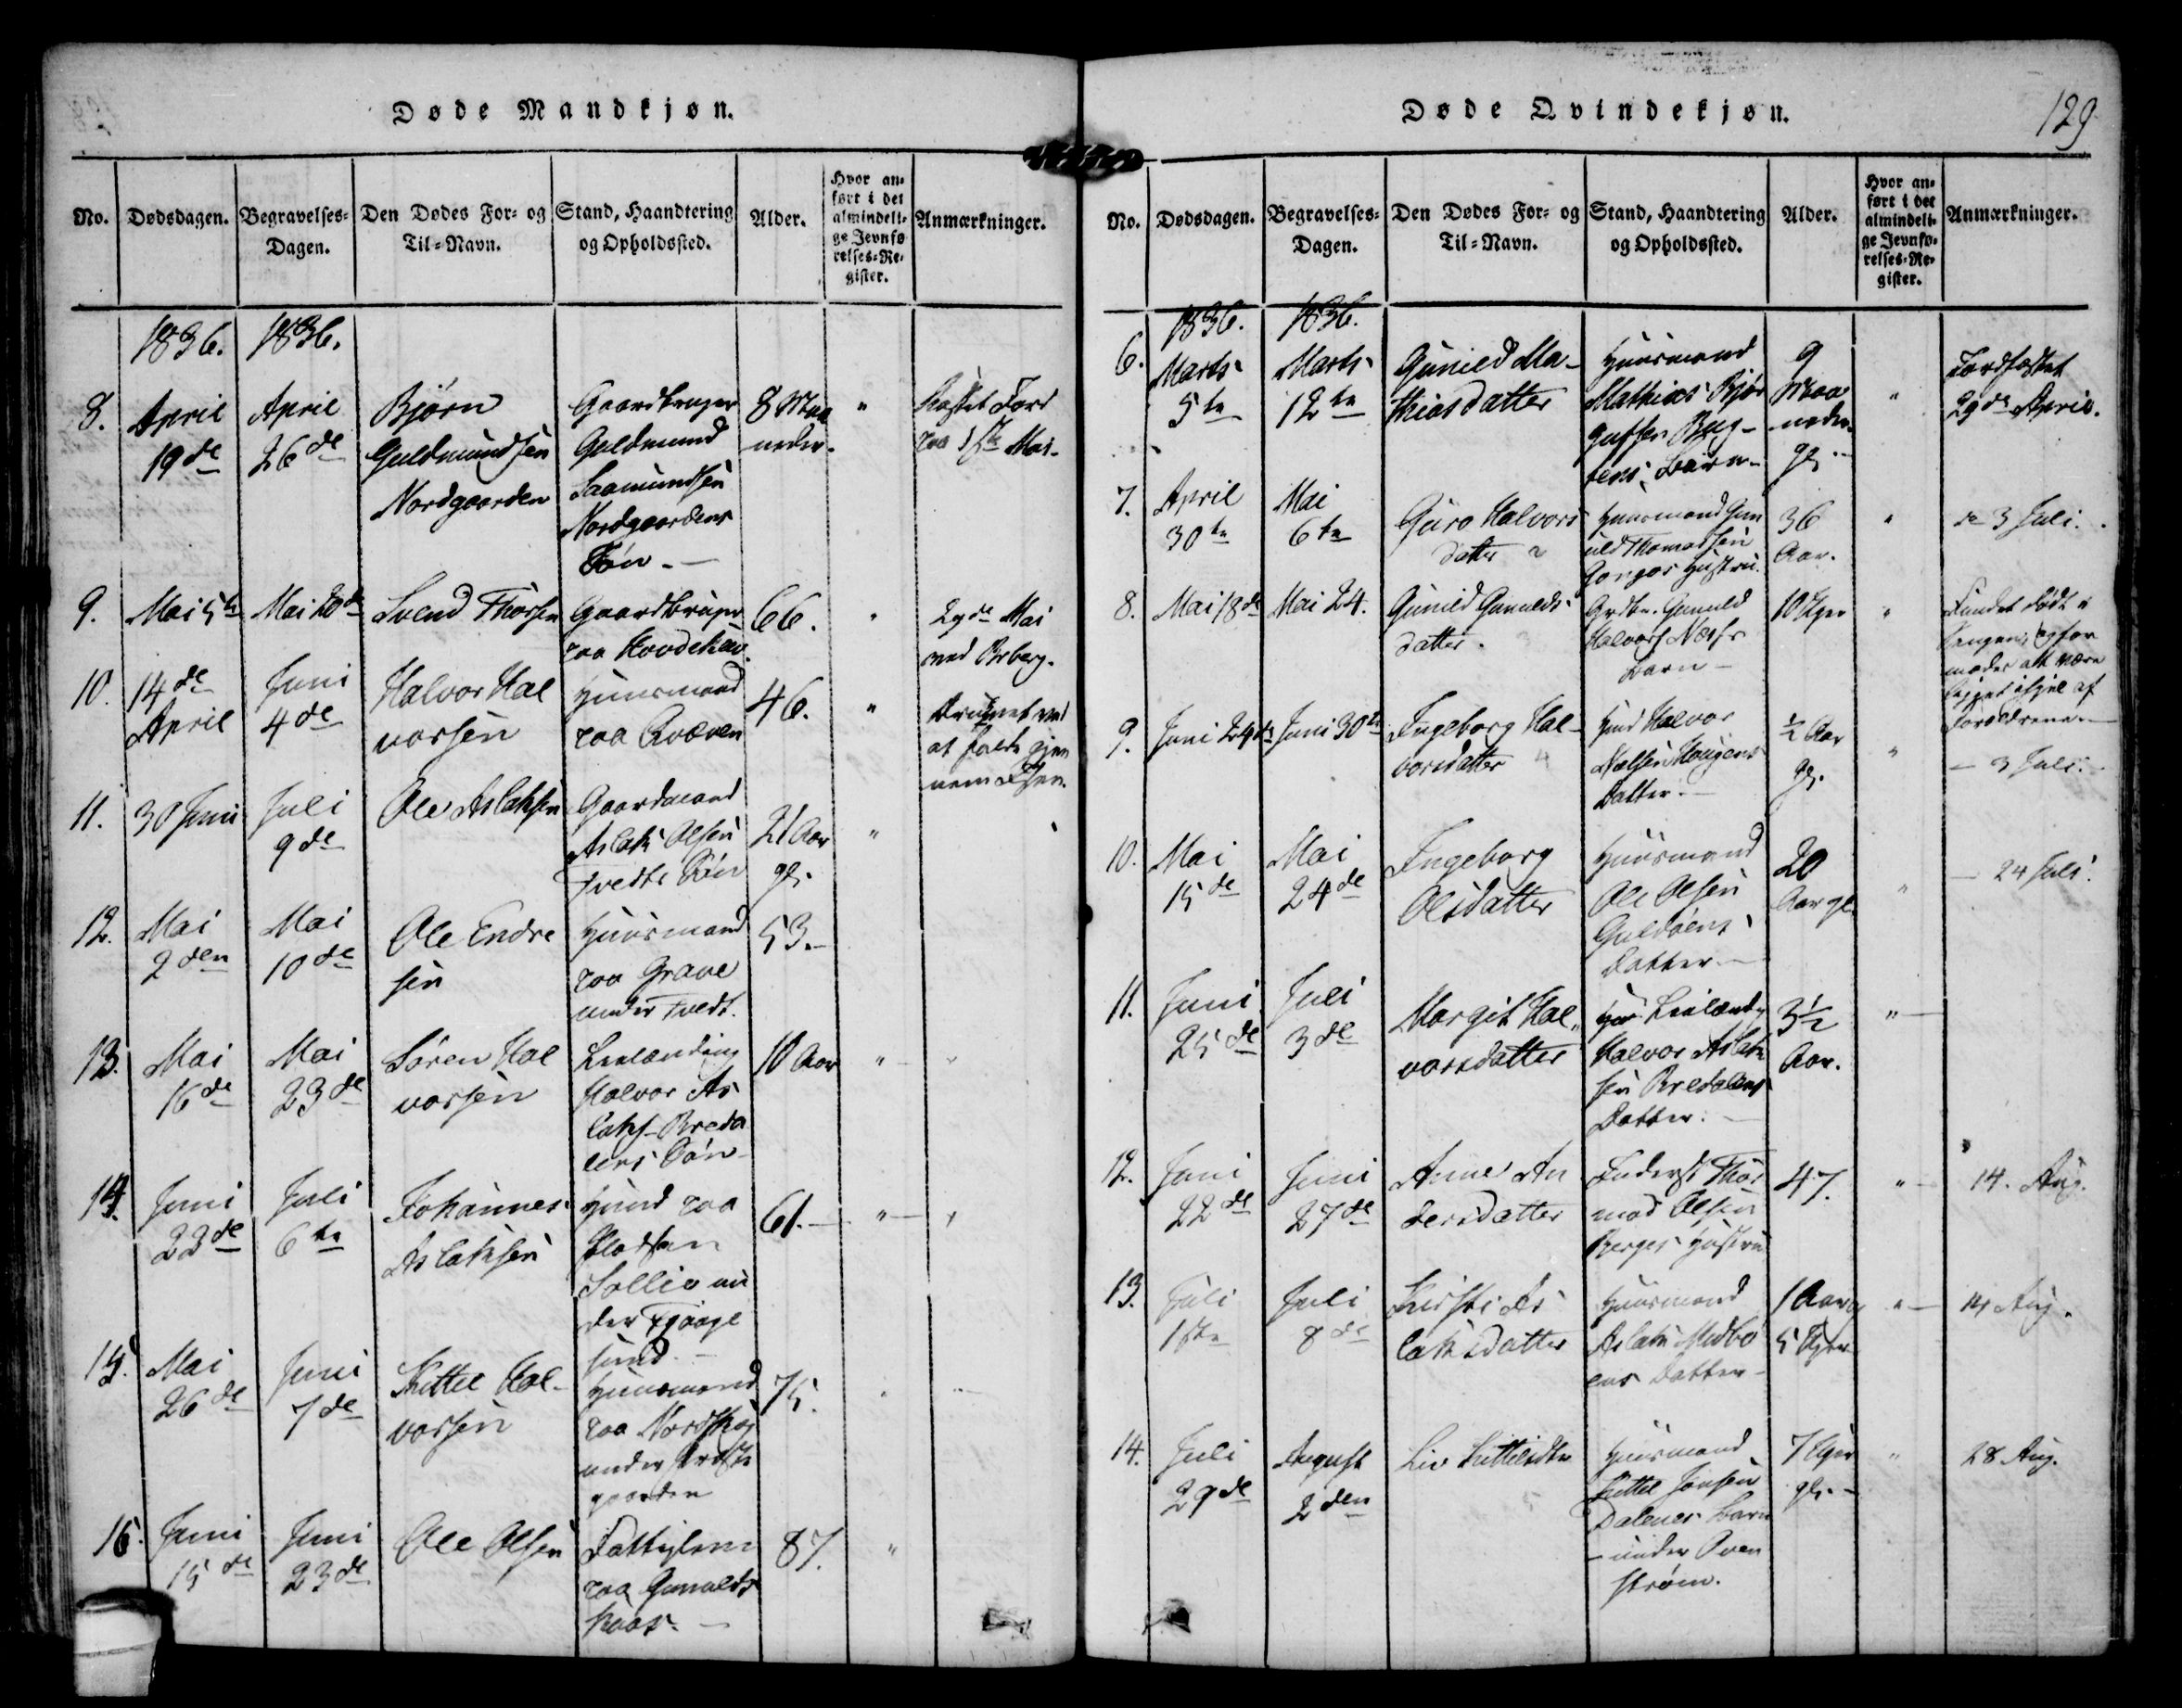 Døde Mandkjøn.
No.
Dødsdagen.
Begravelses-
Dagen.
Den Dødes For- og
Til-Navn.
Stand, Haandtering
og Opholdssted.
Alder.
Hvor an-
ført i det
almindeli-
ge Jevnfø
relses-Re-
gister.
Anmærkninger.
1836. 1836.
8.
April
19de
April
26de
Bjørn
Guldmundsen
Nordgaarden
Gaardbruger
Guldmund
Saamundsen
Nordgaardens
Søn.
8 Maa
neder.
"
Kastet Jord
paa 15de Mai
9.
Mai 5te
Mai 20de
Svend Thorsen
Gaardbruger
paa
66.
"
29de Mai
ved
10.
14de
April
Juni
4de
Halvor Hal
vorsen
Huusmand
paa Qværen
46.
"
Druknet ved
at falde gjen
nem Isen.
11.
30 Juni
Juli
9de
Ole Aslaksen
Gaardmand
Aslak Olsen
Tvedts Søn
21 Aar
gl.
"
12.
Mai
2den
Mai
10de
Ole Endre
sen
Huusmand
paa Grave
under Tvedt.
53.
13.
Mai
16de
Mai
23de
Søren Hal
vorsen
Leilænding
Halvor As
laks. Breda
lens Søn
10 Aar
"
14.
Juni
23de
Juli
6te
Johannes
Aslaksen
Huusmd paa
Pladsen
Sollie un
der
sund.
61.
"
15.
Mai
26de
Juni
7de
Kittel Hal-
vorsen
Huusmand
paa
under Præste
gaarden
75.
"
16.
Juni
15de
Juni
23de
Ole Olsen
Fattiglem
paa Gunulds
kaas.
87.
"
Døde Qvindekjøn.
129
No.
Dødsdagen.
Begravelses-
Dagen.
Den Dødes For- og
Til-Navn.
Stand, Haandtering
og Opholdssted.
Alder.
Hvor an-
ført i det
almindeli-
ge Jevnfø-
relses-Re-
gister.
Anmærkninger.
1836. 1836.
6.
Marts
5te
Marts
12te
Gunild Ma-
thiasdatter
Huusmand
Mathias
Barn
9
Maa
neder
gl.
"
Jordfæstet
29de April.
7.
April
30te
Mai
6te
Guro Halvors
datter
Huusmand Gun
uld Thomassen
Hustru.
36
Aar.
"
3 Juli.
8.
Mai 18de
Mai 24.
Gunild Gunulds
datter.
Grdbr. Gunuld
Halvors. Næss
Barn
10 Uger
"
Fundet Død i
Sengen, og for
modes at være
ligget ihjel af
Forældrene.
9.
Juni 24de
Juni 30te
Ingeborg Hal-
vorsdatter
Husmd Halvor
Haugens
Datter.
½ Aar
gl.
"
3 Juli.
10.
Mai
15de
Mai
24de
Ingeborg
Olsdatter
Huusmand
Ole Olsen
Guldøens
Datter
20
Aar gl.
"
24 Juli.
11.
Juni
25de
Juli
3de
Margit Hal-
vorsdatter
Leilænd.
Halvor Aslak
sen Bredalens
Datter.
3½
Aar.
"
12.
Juni
22de
Juni
27de
Anne An
dersdatter
Inderst Thor
mod Olsen
Berges Hustru
47.
"
14. Aug.
13.
Juli
1ste
Juli
8de
Kirsti As
laksdatter
Huusmand
Aslak Midbø
ens Datter
1 Aar
5 Uger
"
14 Aug.
14.
Juli
29de
August
2den
Liv Kittilsdtr
Huusmand
Kittel Jonsen
Dalenes Barn
under Oven
strøm.
7 Uger
gl.
"
28 Aug.